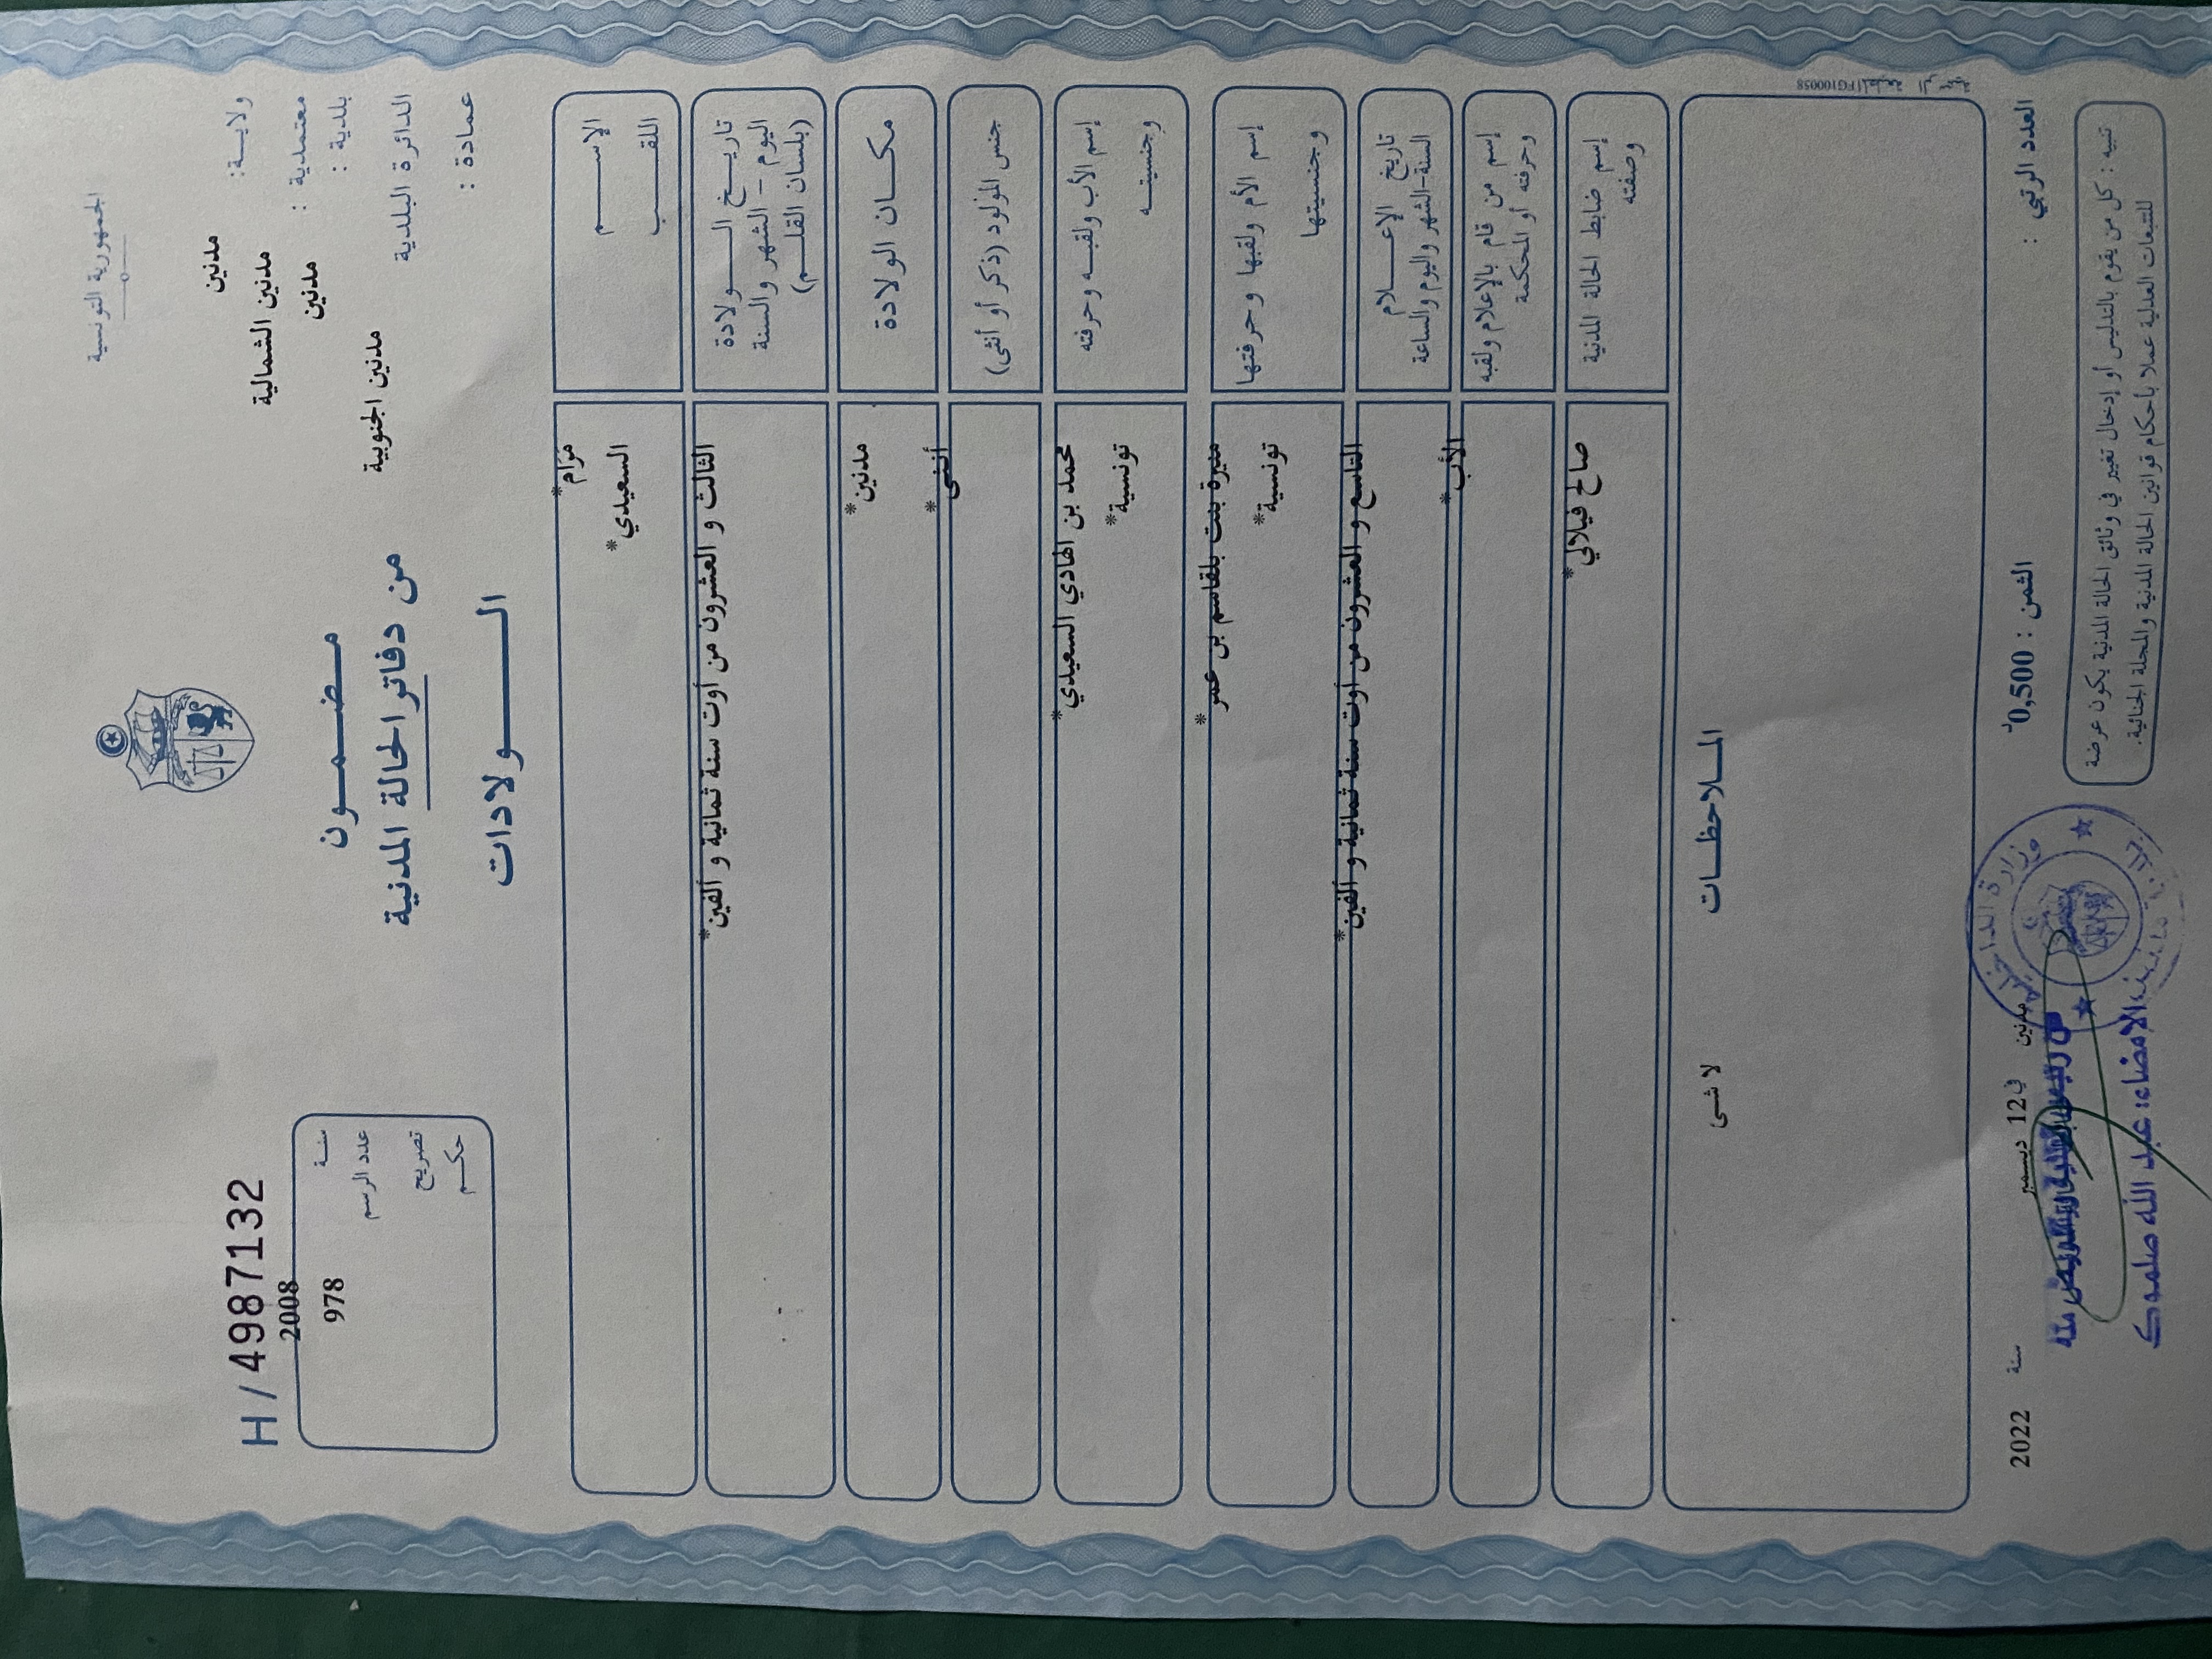 الجمهورية التونسية
ولايـــة: مدنين
معتمدية : مدنين الشمالية
بلدية : مدنين
الدائرة البلدية مدنين الجنوبية
عمادة :
مضمـــون
من دفاتر الحالة المدنية
الـــــولادات
H / 4987132
سنـة 2008
عدد الرسم 978
تصريح
حكـم
الإســـــم مرَام*
اللقـــــب السعيدي*
تاريـــخ الـــــولادة
اليوم - الشهر والسنة
(بلسان القلـــم)
الثالث و العشرون من أوت سنة ثمانية و ألفين*
مكـــان الولادة مدنين*
جنس المولود (ذكر أو أنثى) أنثى*
إسم الأب ولقبـه وحرفته محمد بن الهادي السعيدي*
وجنسيتـــه تونسية*
إسم الأم ولقبها وحرفتها منيرة بنت بلقاسم بن عمر*
وجنسيتها تونسية*
تاريخ الإعـــــلام
السنة-الشهر واليوم والساعة
التاسع و العشرون من أوت سنة ثمانية و ألفين*
إسم من قام بالإعلام ولقبه
وحرفته أو المحكمة
الأب*
إسم ضابط الحالة المدنية
وصفته
صالح فيلالي*
المـــلاحظـــات
لا شىء
العدد الرتبي :
الثمن : 0,500د
مدنين في 12 ديسمبر سنة 2022
تنبيه : كل من يقوم بالتدليس أو إدخال تغيير في وثائق الحالة المدنية يكون عرضة
للتتبعات العدلية عملا بأحكام قوانين الحالة المدنية والمجلة الجنائية.
وزارة الداخلية
الامضاء: عبد الله صلموك